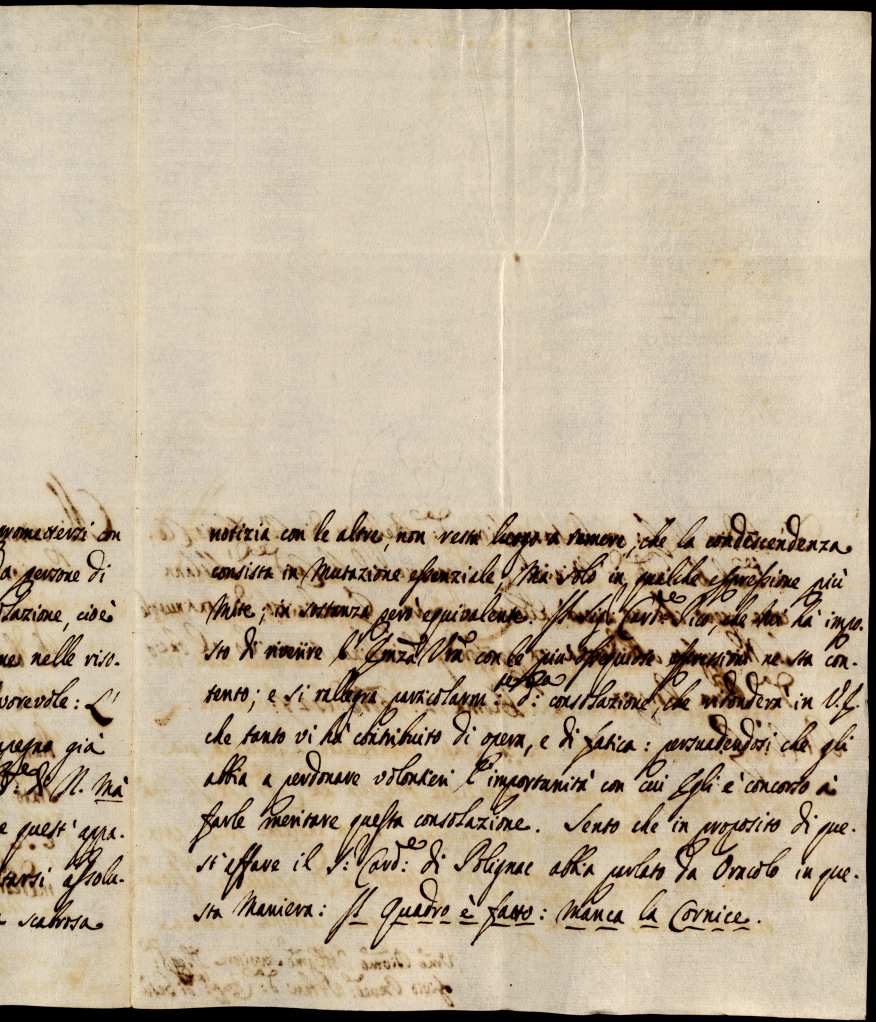 promettersi con
a persone di
olazione, cioè
ne nelle riso-
vorevole: L'
mpegno già
di N. Mà
e quest' appa-
tarsi assolu-
scabrosa
notizia con le altre, non resta luogo a temere, che la condescendenza
consista in Mutazione essenziale, Mà solo in qualche espressione più
Mite; in sostanza però equivalente. Il Sig.r Card.e Pico, che mi hà impo-
sto di riverire l'Emza Vra con le più ossequiose espressioni ne sta con-
tento; e si rallegra particolarm.te della consolazione, che ridonderà in V.E.
che tanto vi hà contribuito di opera, e di fatica: persuadendosi che gli
abbia a perdonare volontieri l'importunità con cui Egli è concorso à
farle meritare questa consolazione. Sento che in proposito di que-
st' affare il S.r Card.e di Polignac abbia parlato da Oracolo in que-
sta Maniera: Il Quadro è fatto: manca la Cornice.